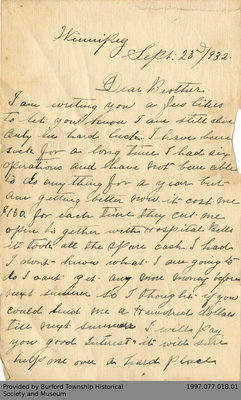 Winnipeg
Sept. 23rd/932.
Dear Brother
I am writing you a few lines
to let you know I am still alive
only in hard luck I have been
sick for a long time I had six
operations and have not been able
to do any thing for a year but
am getting better now it cost me
$150 for each time they cut me
open to gether with Hospital Bills
it took all the spare cash I had
I dont know what I am going to
do I cant get any more money before
next summer so I thought if you
could send me a Hundred dollars
till next summer I will pay
you good Interest it will sure
help me over a hard place
Provided by Burford Township Historical
Society and Museum
1997.077.018.01